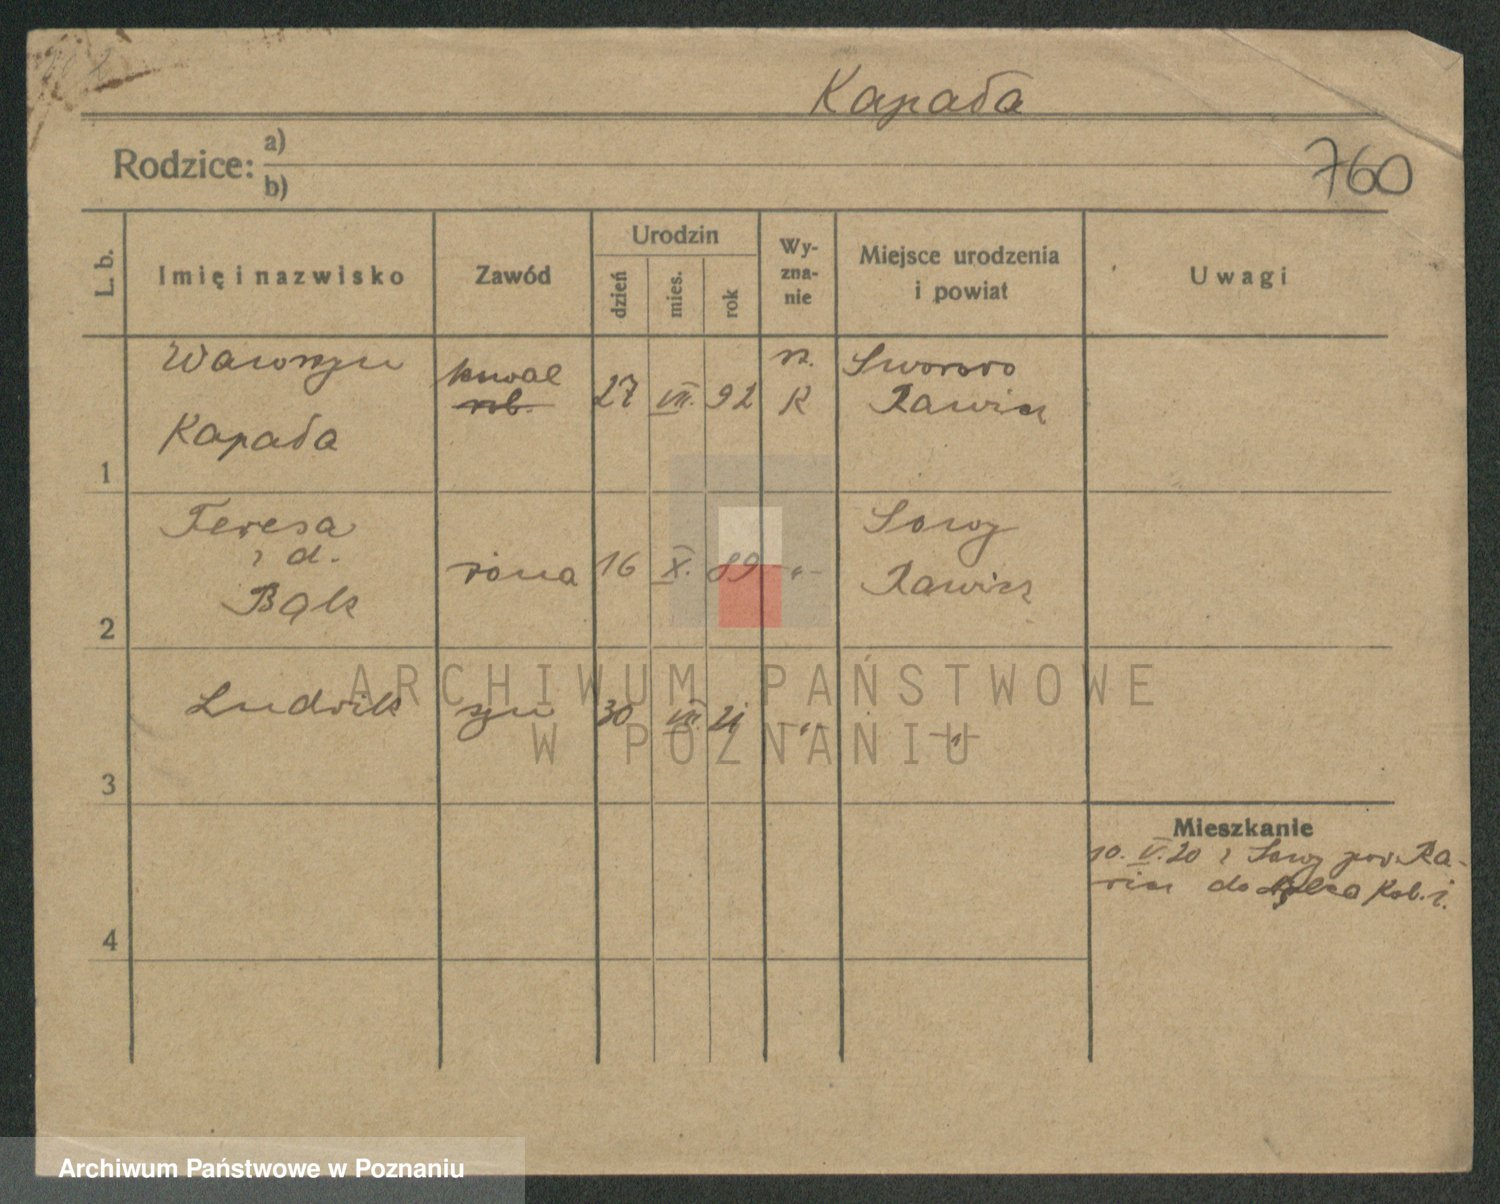 Kapała
Rodzice: a)
b)
760
L. b.
Imię i nazwisko
Zawód
Urodzin
dzień
mies.
rok
Wy-
zna-
nie
Miejsce urodzenia
i powiat
Uwagi
Wawrzyn
Kapała
1
inwal
rob.
27 VII. 92
rz.
K
Sworowo
Rawicz
Teresa
z d.
Bąk
2
żona
16 X. 89 -"-
Sowy
Rawicz
Ludwik
3
syn
30 VII. 21 -"-
-"-
4
Mieszkanie
10. V. 20 z Sowy pow. Ra-
wicz do
ARCHIWUM PAŃSTWOWE
W POZNANIU
Archiwum Państwowe w Poznaniu